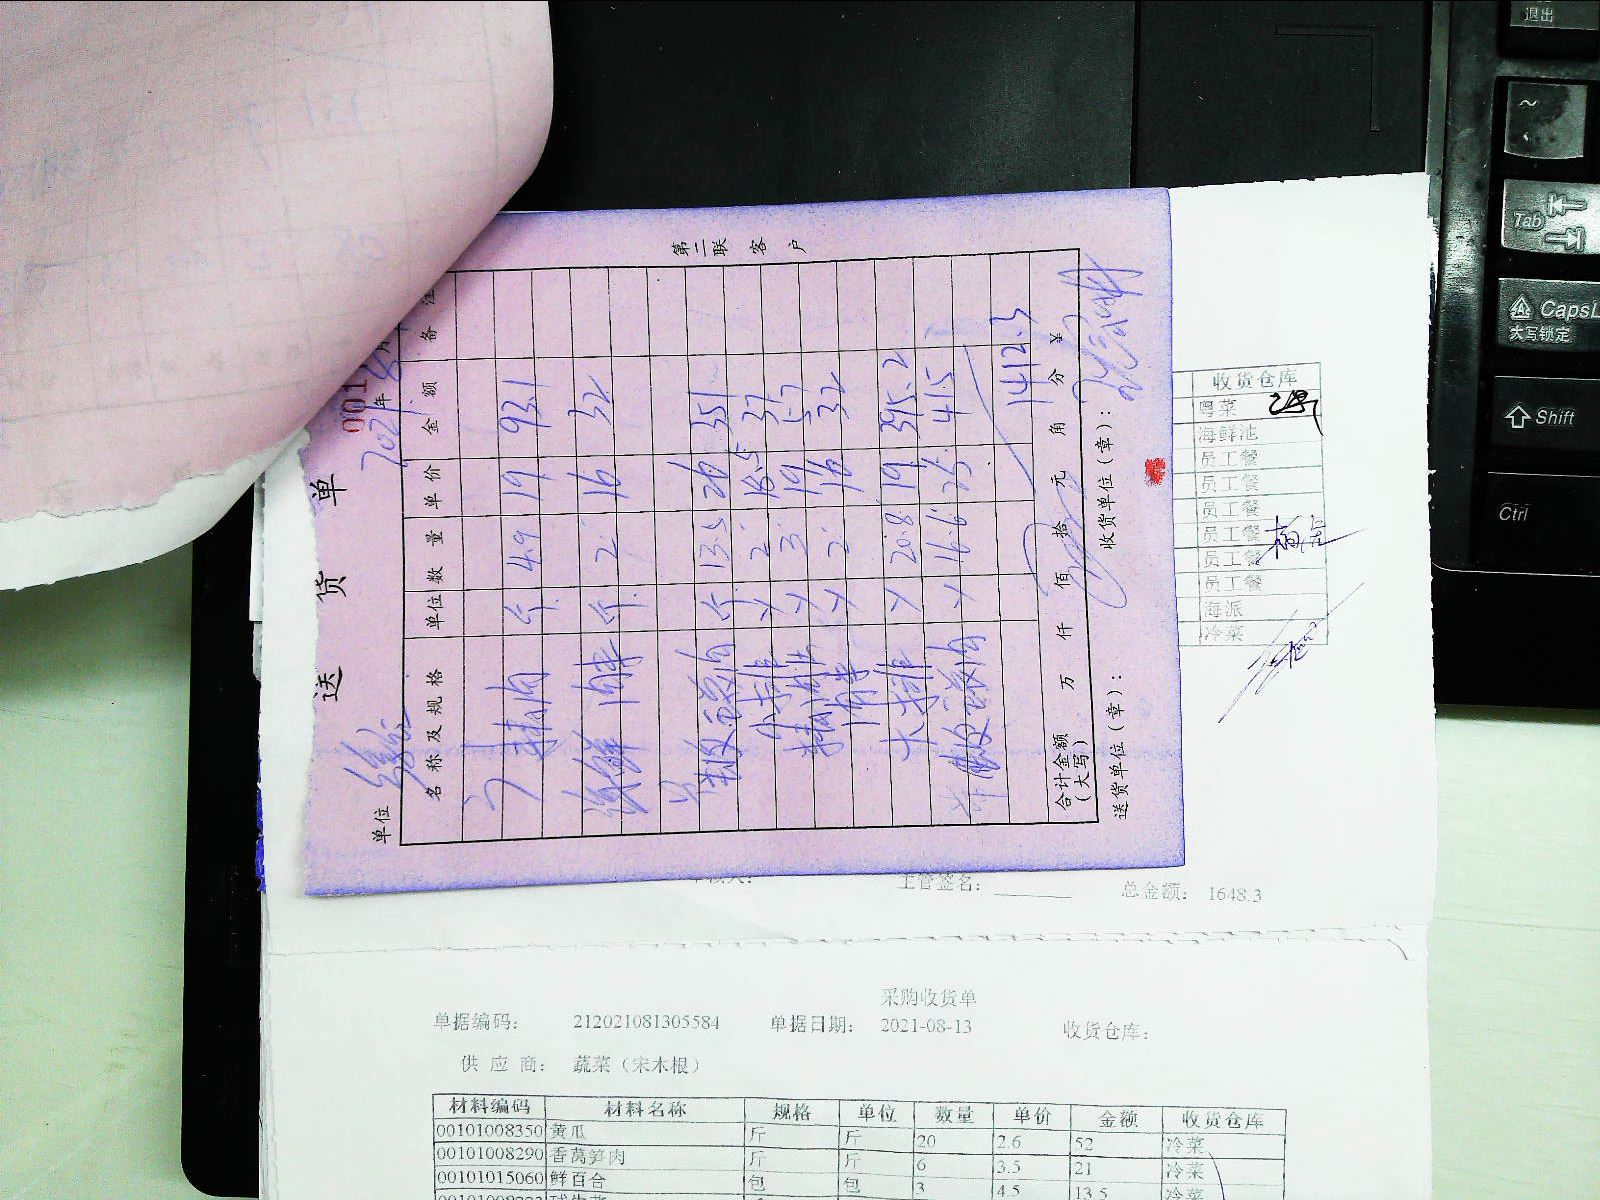 送 货 单
001
2021年 8月
单位
名称及规格 单位 数量 单价 金额 备注
精肉 斤 4.9 19 93.1
海鲜 肉串 斤 2 16 32
斤 13.5 26 351
小排 〃 2 18.5 37
精肉 〃 3 19 57
〃 2 16 32
大排 〃 20.8 19 395.2
〃 16.6 25 415
1412.3
合计金额(大写) 万 仟 佰 拾 元 角 分 ¥
送货单位(章): 收货单位(章):
第二联 客户
收货仓库
粤菜
海鲜池
员工餐
员工餐
员工餐
员工餐
员工餐
员工餐
海派
冷菜
主管签名: 总金额: 1648.3
采购收货单
单据编码: 212021081305584 单据日期: 2021-08-13 收货仓库:
供 应 商: 蔬菜（宋木根）
材料编码 材料名称 规格 单位 数量 单价 金额 收货仓库
00101008350 黄瓜 斤 斤 20 2.6 52 冷菜
00101008290 香莴笋肉 斤 斤 6 3.5 21 冷菜
00101015060 鲜百合 包 包 3 4.5 13.5 冷菜
退出
~
Tab
CapsL
大写锁定
Shift
Ctrl